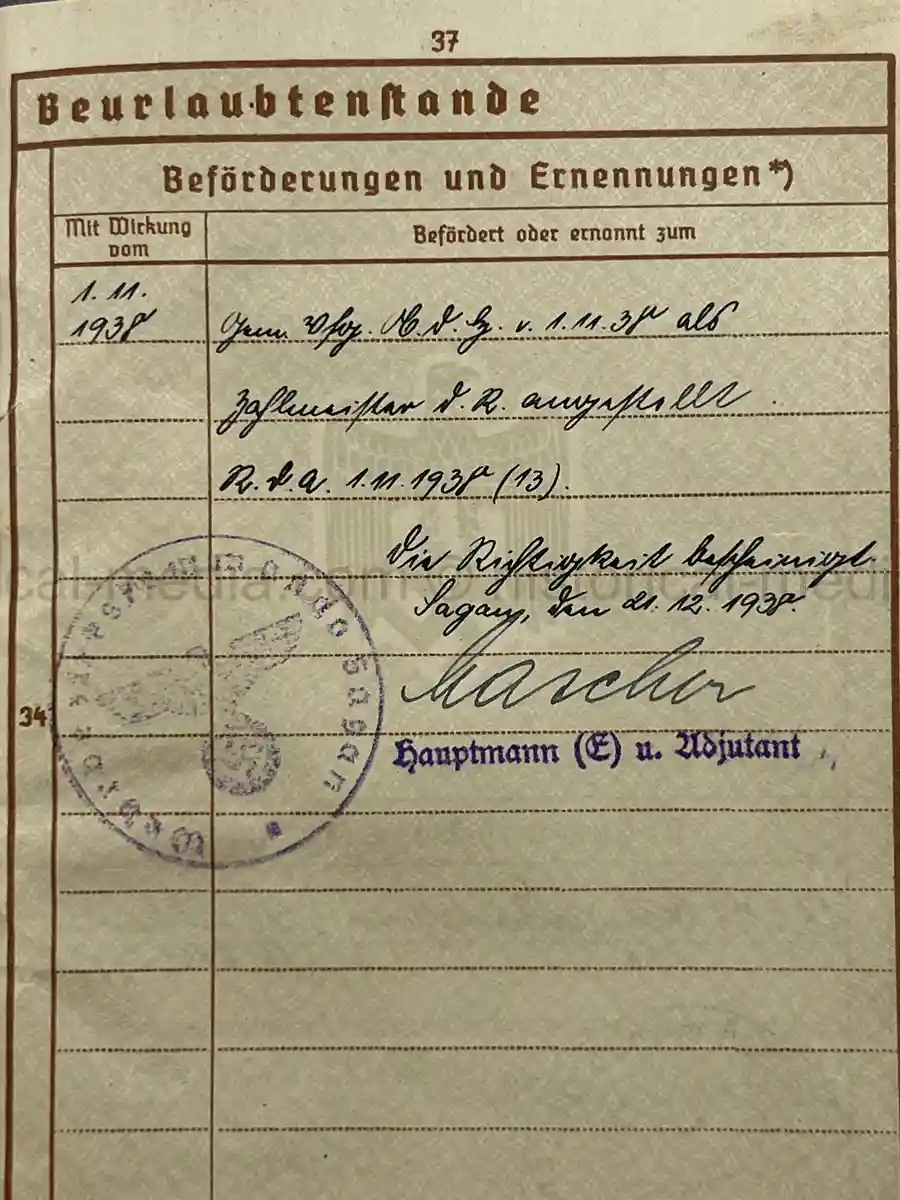 37
Beurlaubtenstande
Beförderungen und Ernennungen*)
Mit Wirkung
vom
Befördert oder ernannt zum
1. 11.
1938
Gem. Vfg. Ob. d. H. v. 1.11.38 als
Zahlmeister d. R. angestellt.
R.d.A. 1.11.1938 (13).
Die Richtigkeit bescheinigt.
Sagan, den 21. 12. 1938.
Mascher
34
Hauptmann (E) u. Adjutant
Wehrbezirkskommando Sagan